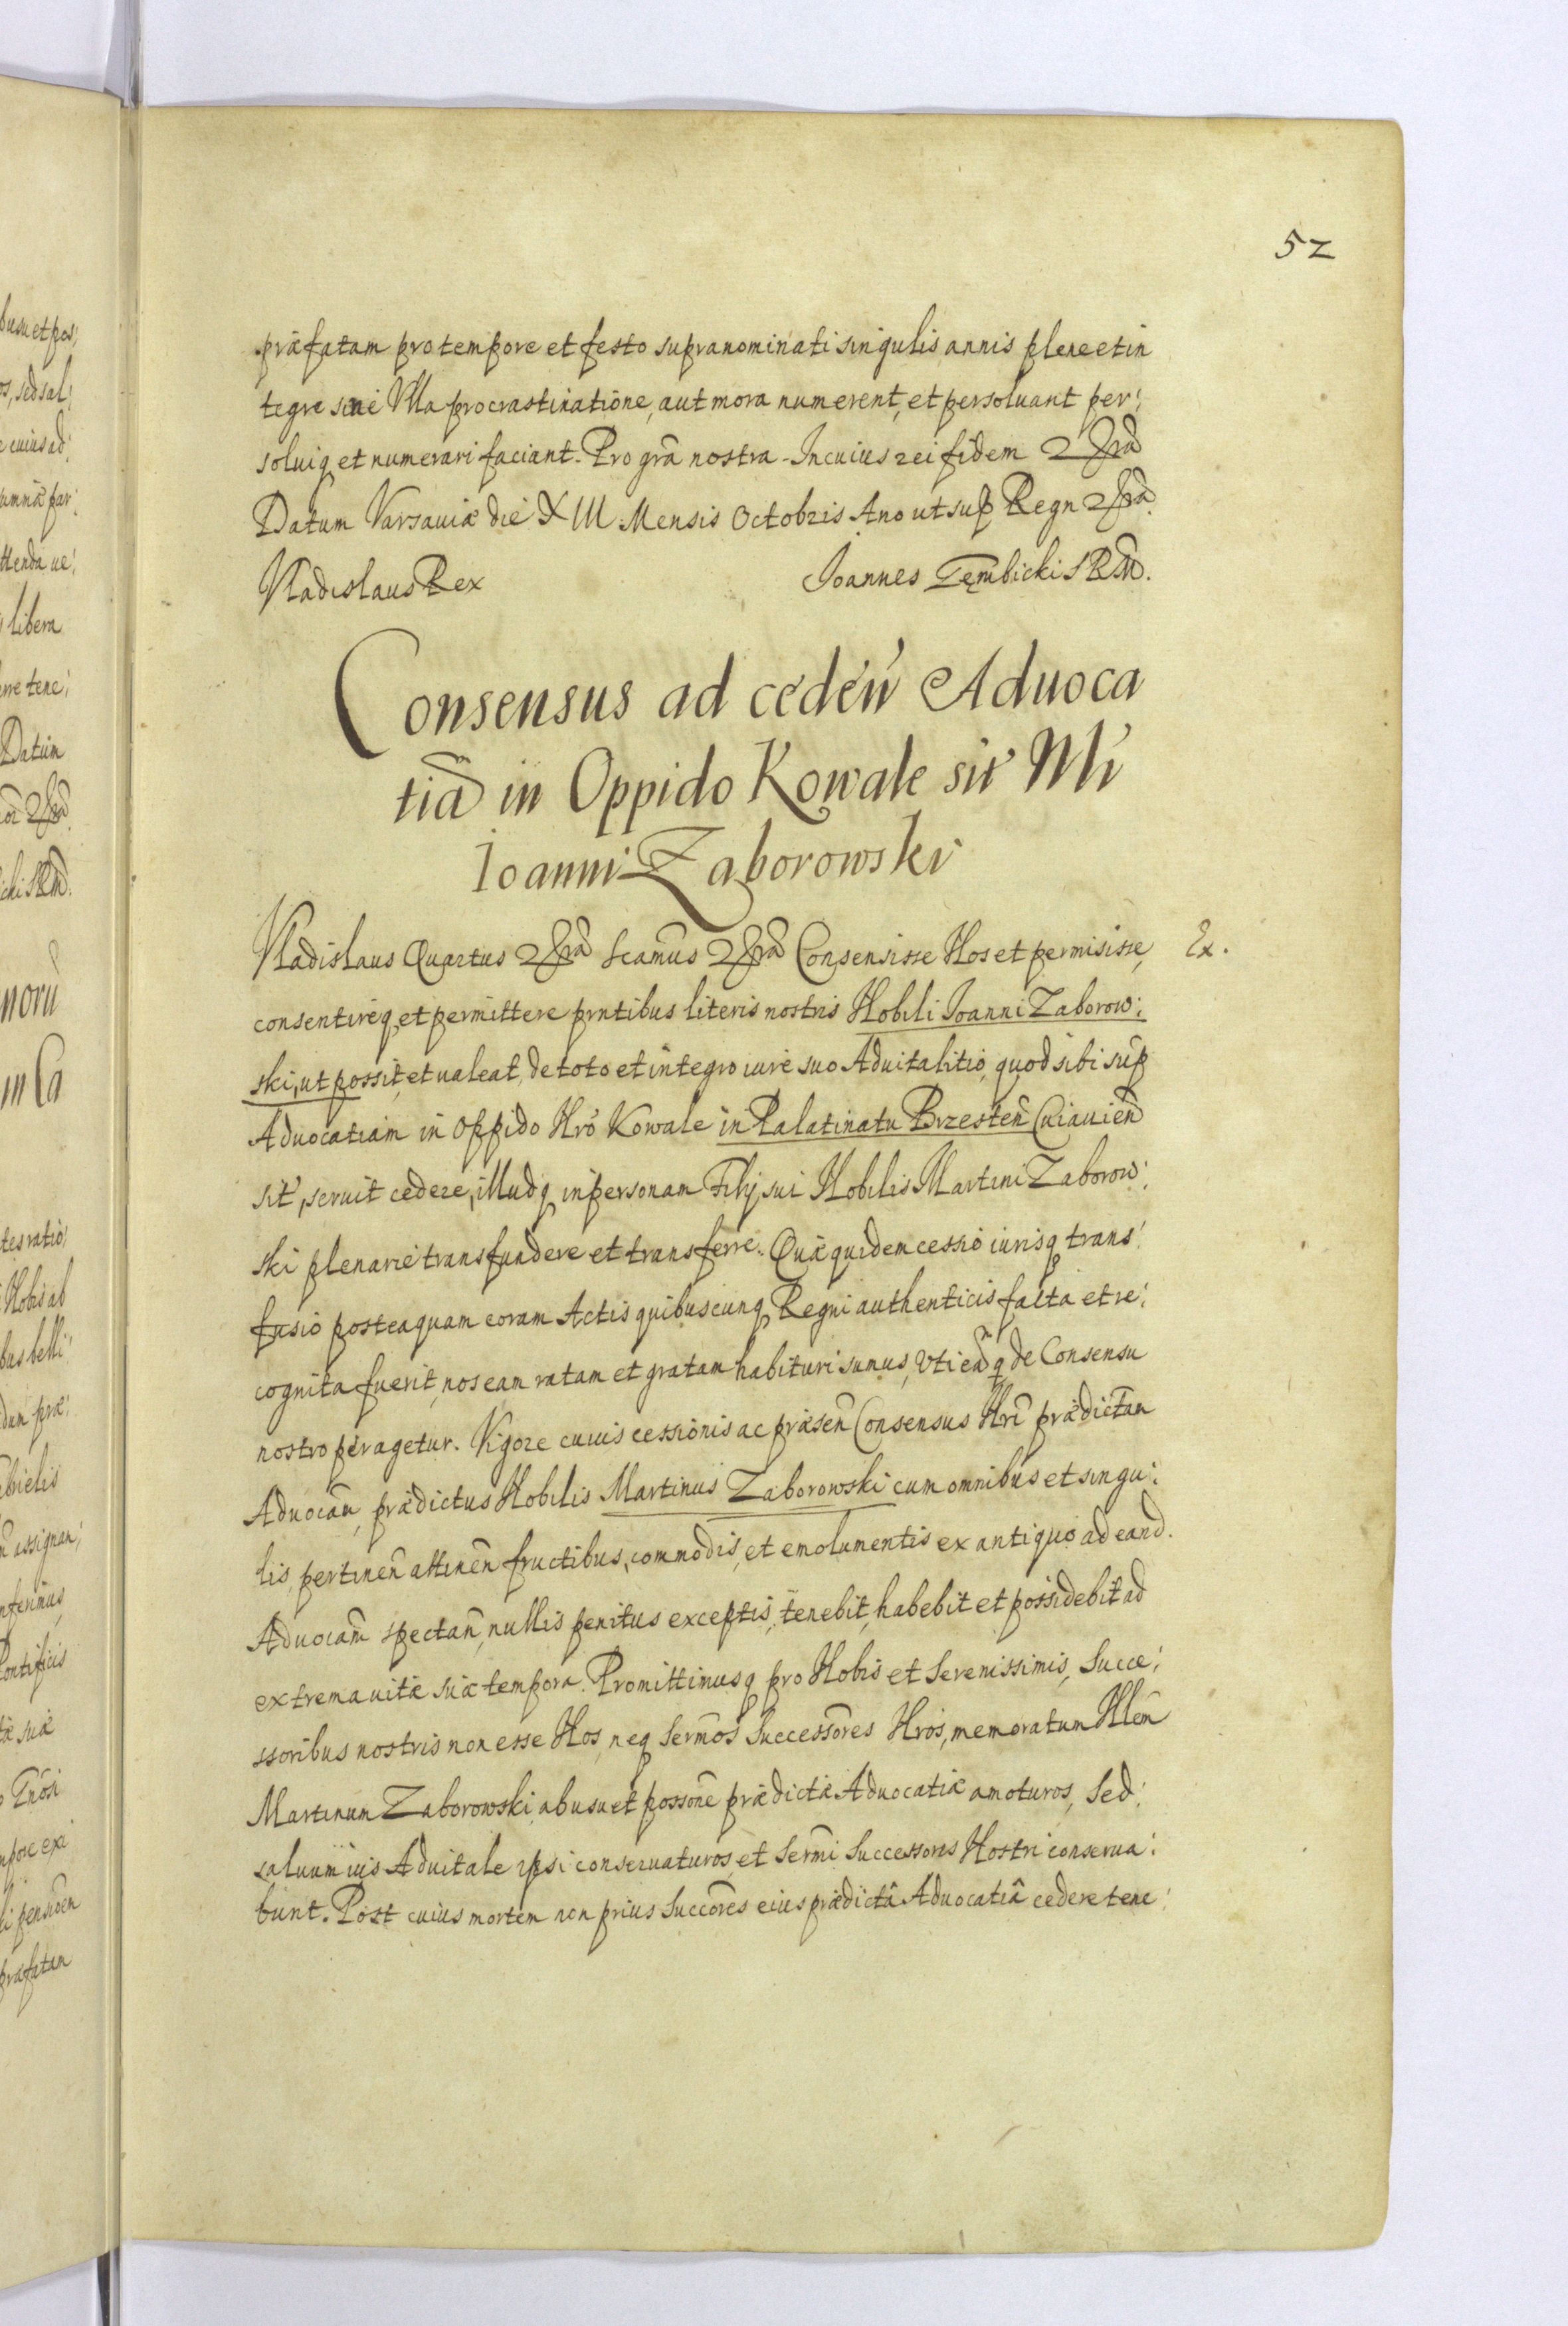 52
præfatam pro tempore et festo supranominati singulis annis plene et in
tegre sine Ulla procrastinatione, aut mora numerent, et persoluant per:
soluiq et numerari faciant. Pro grã nostra. In cuius rei fidem
Datum Varsauiæ die XIII Mensis Octobris Ano ut sup Regn
Vladislaus Rex Joannes Gembicki S R M.
Consensus ad cedeń Aduoca
tiã in Oppido Kowale sit Nli
Ioanni Zaborowski
Vladislaus Quartus Scamũs Consensisse Nos et permisisse, Ex.
consentireq, et permittere pñtibus literis nostris Nobili Joanni Zaborow:
ski, ut possit, et ualeat, de toto et integro iure suo Aduitalitio, quod sibi sup
Aduocatiam in Oppido Nrõ Kowale in Palatinatu Brzesteñ Cuiauieñ
sit, seruit cedere, illudq in personam Filij sui Nobilis Martini Zaborow:
ski plenarie transfundere et transferre. Quæ quidem cessio iurisq trans:
fusio posteaquam coram Actis quibuscunq Regni authenticis facta et re:
cognita fuerit, nos eam ratam et gratam habituri sumus, Uti eã q de Consensu
nostro peragetur. Vigore cuiuis cessionis ac præseñ Consensus Nri prædictam
Aduocañ, prædictus Nobilis Martinus Zaborowski cum omnibus et singu:
lis, pertineñ attineñ fructibus, commodis, et emolumentis ex antiquo ad eand.
Aduocam̃ spectañ, nullis penitus exceptis, tenebit, habebit et possidebit ad
extrema uitæ suæ tempora. Promittimusq pro Nobis et Serenissimis, Succe:
ssoribus nostris non esse Nos, neq Sermos Successores Nros, memoratum Nlem
Martinum Zaborowski, ab usu et possone prædictæ Aduocatiæ amoturos, Sed:
saluum ius Aduitale ipsi conseruaturos, et Sermi Successores Nostri conserua:
bunt. Post cuius mortem non prius Succores eius prædictâ Aduocatiâ cedere tene: